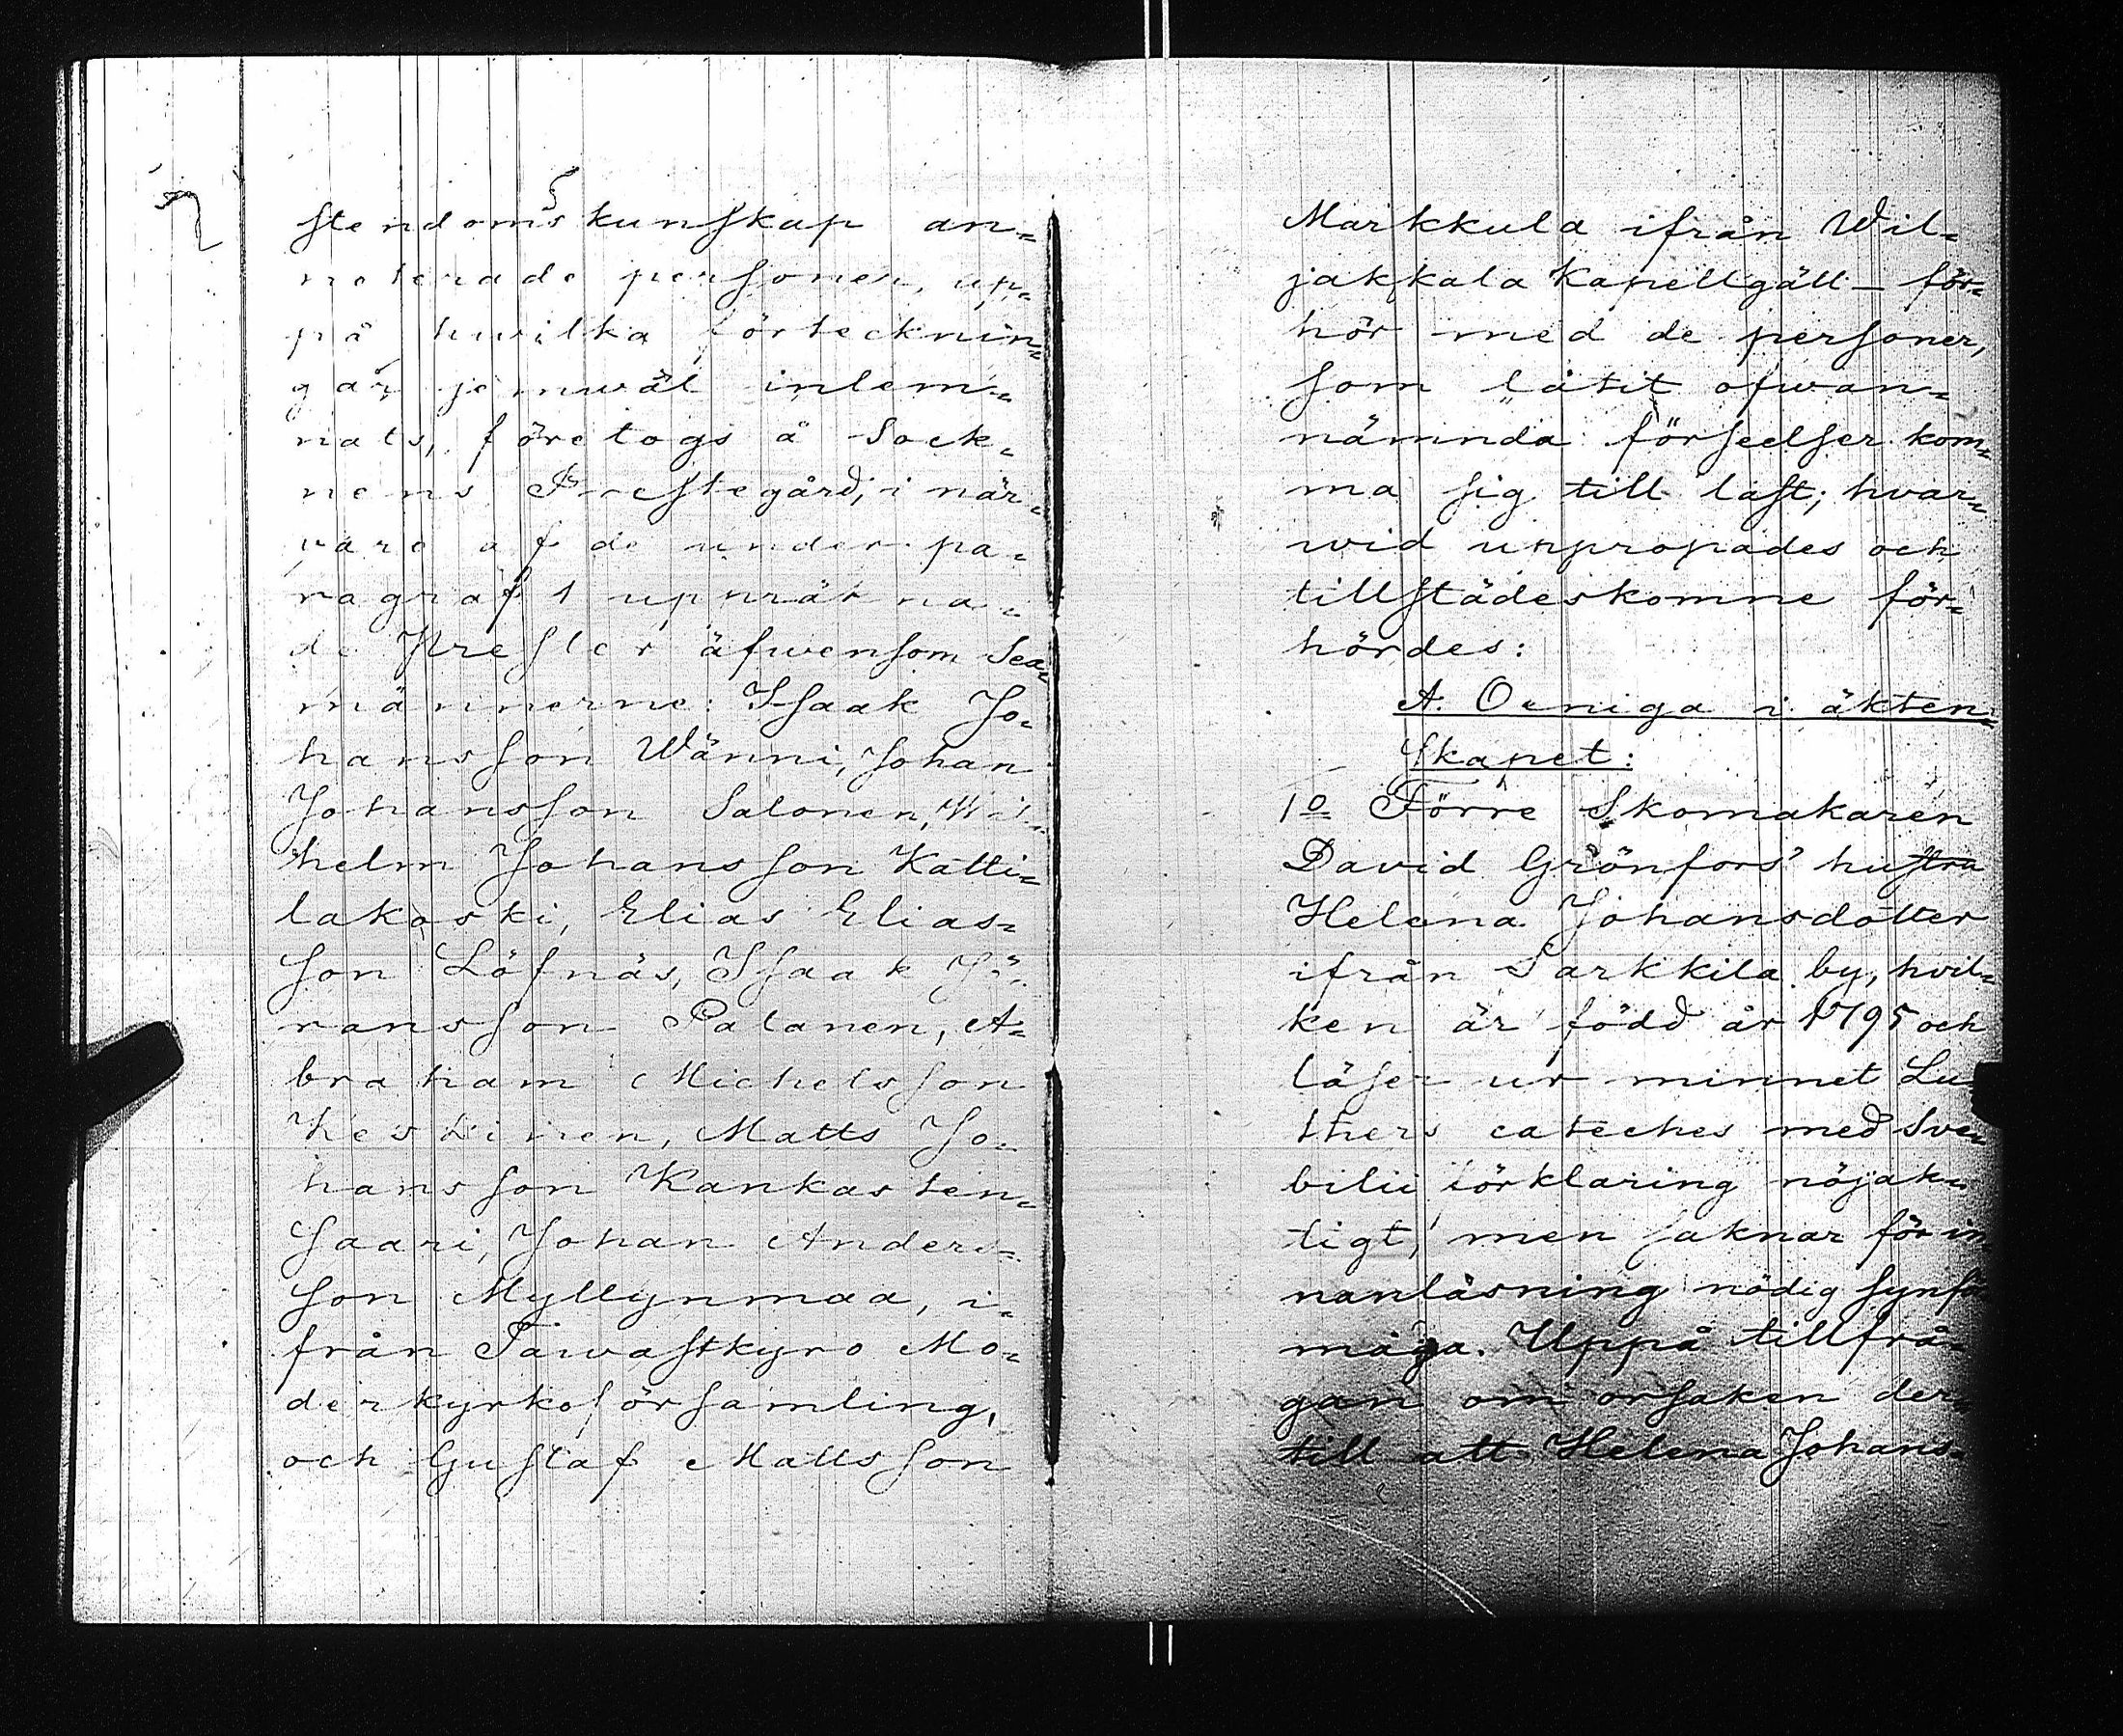 stendomskunskap an=
noterade personer, up=
på hwilka förtecknin=
gar jemwäl inlem=
nats, företogs å Sock=
nens Prestegård, i när=
varo af de under pa=
ragraf 1 upräkna=
de Prester äfwensom Sex=
männerne: Isaak Jo=
hansson Wänni, Johan
Johansson Salonen, Wil=
helm Johansson Katti=
lakoski, Elias Elias=
son Löfnäs, Isaak Jö=
ransson Palanen, A=
braham Michelsson
Keskinen, Matts Jo=
hansson Kankasten=
saari, Johan Anders=
son Myllynmaa, i=
från Tawastkyro Mo=
derkyrkoförsamling,
och Gustaf Mattsson
Markkula ifrån Wil=
jakkala Kapellgäll — för=
hör med de personer,
som låtit ofwan=
nämnda förseelser kom=
ma sig till last; hvar=
wid uppropades och
tillstädeskomne för=
hördes:
A. Oeniga i äkten=
skapet:
1o Förre Skomakaren
David Grönfors' hustru
Helena Johansdotter
ifrån Sarkkila by, hvil=
ken är född år 1795 och
läser ur minnet Lu=
thers cateches med Sve=
bilii förklaring nöjak=
tigt, men saknar för in
nanläsning nödig synfö
måga. Uppå tillfrå=
gan om orsaken der=
till att Helena Johans=